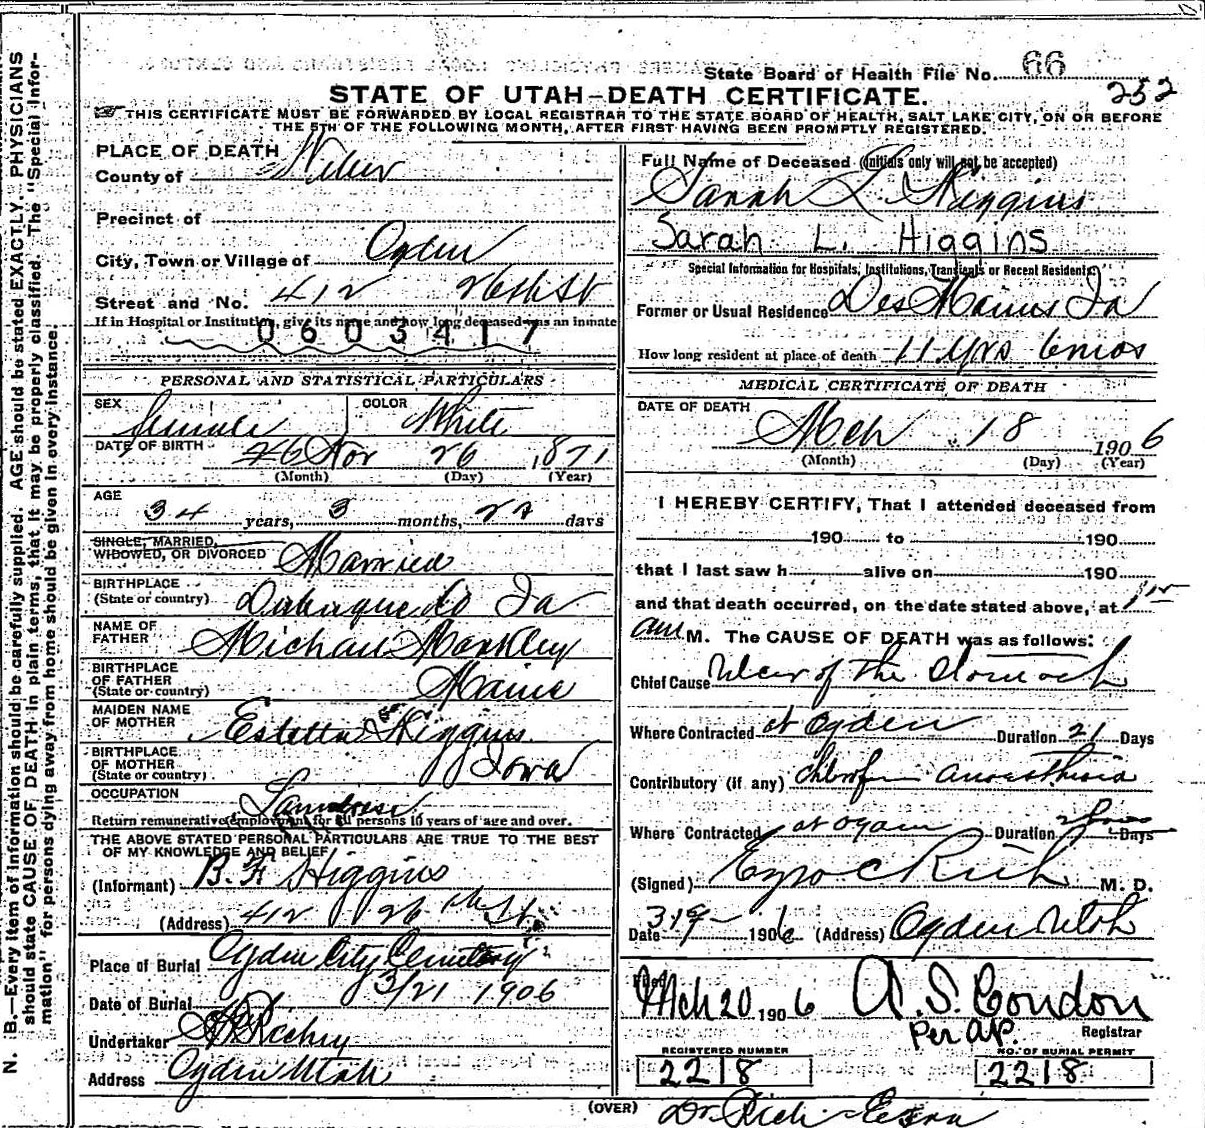 State Board of Health File No. 66
252
STATE OF UTAH—DEATH CERTIFICATE.
THIS CERTIFICATE MUST BE FORWARDED BY LOCAL REGISTRAR TO THE STATE BOARD OF HEALTH, SALT LAKE CITY, ON OR BEFORE
THE 5TH OF THE FOLLOWING MONTH, AFTER FIRST HAVING BEEN PROMPTLY REGISTERED.
N. B.—Every item of information should be carefully supplied. AGE should be stated EXACTLY. PHYSICIANS
should state CAUSE OF DEATH in plain terms, that it may be properly classified. The "Special Infor-
mation" for persons dying away from home should be given in every instance.
PLACE OF DEATH
County of Weber
Precinct of
City, Town or Village of Ogden
Street and No. 412 26th St
If in Hospital or Institution, give its name and how long deceased was an inmate
0603417
PERSONAL AND STATISTICAL PARTICULARS
SEX female COLOR White
DATE OF BIRTH 26 Nov 26 1871
(Month) (Day) (Year)
AGE
34 years, 3 months, 22 days
SINGLE, MARRIED,
WIDOWED, OR DIVORCED Married
BIRTHPLACE
(State or country) Dubuque Co Ia
NAME OF
FATHER Michael Markley
BIRTHPLACE
OF FATHER
(State or country) Maine
MAIDEN NAME
OF MOTHER Estella Higgins
BIRTHPLACE
OF MOTHER
(State or country) Iowa
OCCUPATION Laundress
Return remunerative employment for all persons 10 years of age and over.
THE ABOVE STATED PERSONAL PARTICULARS ARE TRUE TO THE BEST
OF MY KNOWLEDGE AND BELIEF
(Informant) B. F. Higgins
(Address) 412 26th St.
Place of Burial Ogden City Cemetery
Date of Burial 3/21 1906
Undertaker Richey
Address Ogden Utah
Full Name of Deceased (Initials only will not be accepted)
Sarah L. Higgins
Sarah L. Higgins
Special Information for Hospitals, Institutions, Transients or Recent Residents
Former or Usual Residence Des Moines Ia
How long resident at place of death 11 yrs 6 mos
MEDICAL CERTIFICATE OF DEATH
DATE OF DEATH
Mch 18 1906
(Month) (Day) (Year)
I HEREBY CERTIFY, That I attended deceased from
190 to 190
that I last saw h alive on 190
and that death occurred, on the date stated above, at
am M. The CAUSE OF DEATH was as follows:
Chief Cause Ulcer of the Stomach
Where Contracted at Ogden Duration 21 Days
Contributory (if any) chlorofm anaesthesia
Where Contracted at Ogden Duration 2 hours Days
(Signed) Ezra C Rich M. D.
Date 3/19 1906 (Address) Ogden Utah
Filed Mch 20 1906 A. S. Condon
Per A.P. Registrar
REGISTERED NUMBER
2218
NO. OF BURIAL PERMIT
2218
(OVER)
Dr. Rich - Ezra